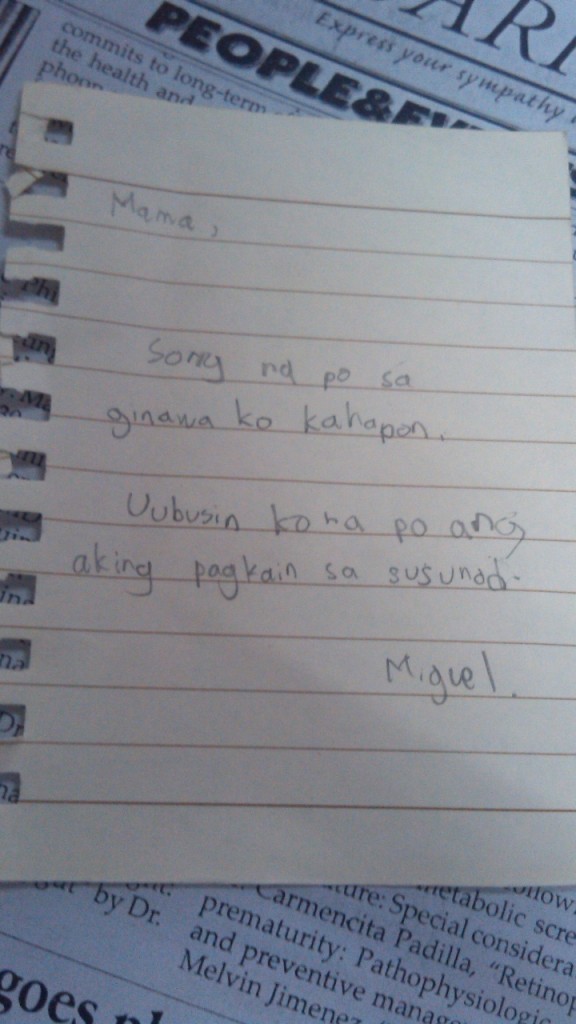 ARI
Express your sympathy
PEOPLE&EV
commits to long-term
the health and
phoon
Mama,
Sorry na po sa
ginawa ko kahapon.
Uubusin ko na po ang
aking pagkain sa susunod.
Miguel.
by Dr.
ture: Special considera
Carmencita Padilla, "Retinop
prematurity: Pathophysiologic
and preventive manage
Melvin Jimenez
metabolic scre
follow
goes pl